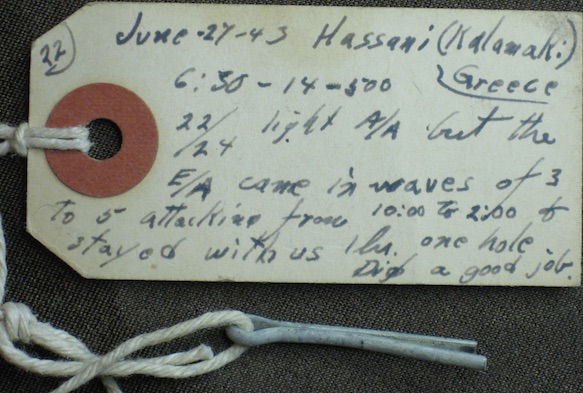 22
June-27-43 Hassani (Kalamaki)
Greece
6:30-14-500
22/24 light A/A but the
E/A came in waves of 3
to 5 attacking from 10:00 to 2:00 &
stayed with us 1 hr. one hole
Did a good job.